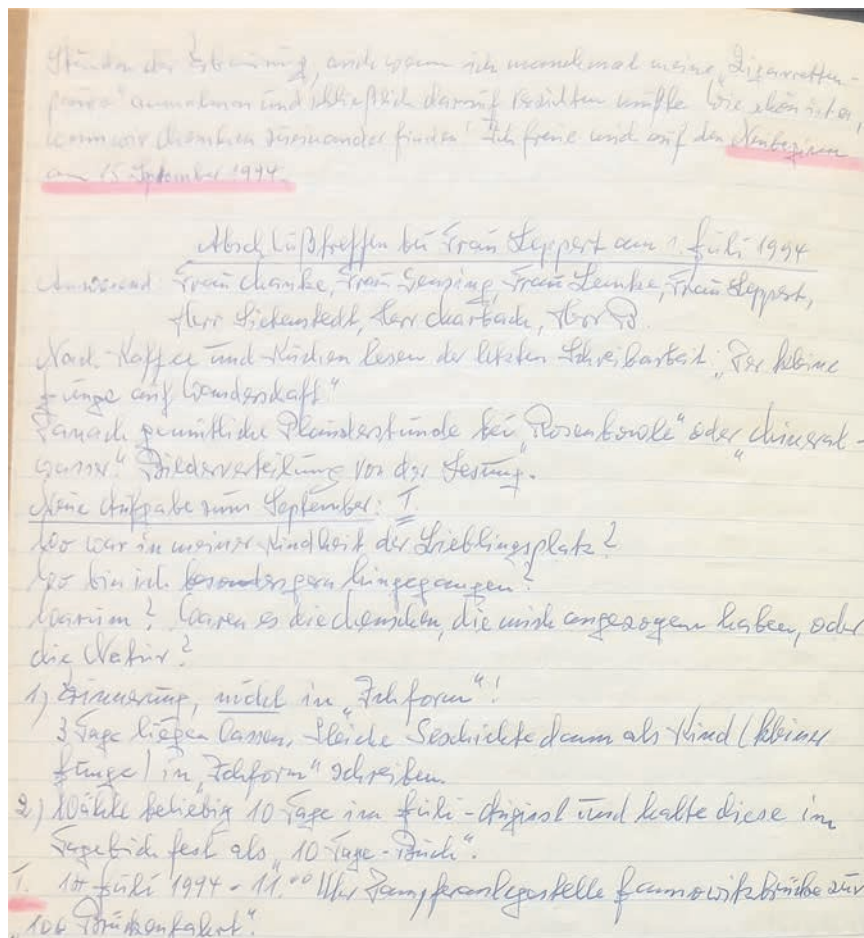 Stunden der Erinnerung, auch wenn ich manchmal meine „Zigaretten-
pause“ anmahnen und schließlich darauf verzichten mußte. Wie schön ist es,
wenn wir Menschen zueinander finden! Ich freue mich auf den Neubeginn
am 15. September 1994.
Abschlußtreffen bei Frau Leppert am 1. Juli 1994
Anwesend: Frau Manke, Frau Sensing, Frau Lemke, Frau Leppert,
Herr Lichenstedt, Herr Marbach, Herr B.
Nach Kaffee und Kuchen lesen der letzten Schreibarbeit: „Der kleine
Junge auf Wanderschaft“
Danach gemütliche Plauderstunde bei „Rosenbowle“ oder „Mineral-
wasser.“ Bilderverteilung von der Lesung.
Neue Aufgabe zum September: I.
Wo war in meiner Kindheit der Lieblingsplatz?
Wo bin ich besonders gern hingegangen?
Warum? Waren es die Menschen, die mich angezogen haben, oder
die Natur?
1) Erinnerung, nicht in „Ichform“!
3 Tage liegen lassen, Gleiche Geschichte dann als Kind (kleiner
Junge) in „Ichform“ schreiben.
2.) Wähle beliebig 10 Tage im Juli-August und halte diese im
Tagebuch fest als „10 Tage-Buch“.
T. Juli 1994 - 11.00 Uhr Dampferanlegestelle Jannowitzbrücke zur
Brückenfahrt“.